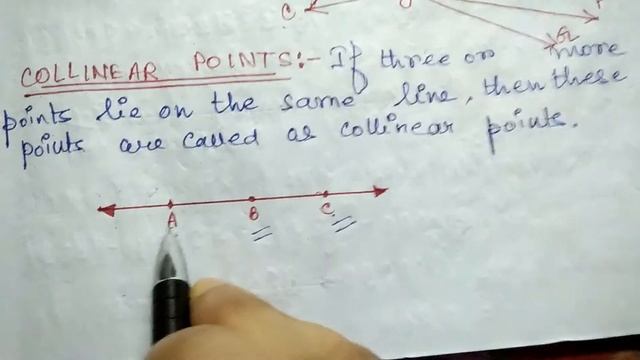 C
COLLINEAR POINTS:- If three or more
points lie on the same line, then these
points are called as collinear points.
A B C